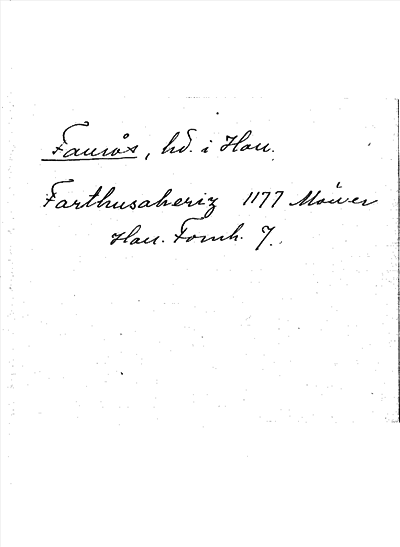 Faurås, hd. i Hall.
Farthusaheriz 1177 Möwer
Hall. Fornh. 7.